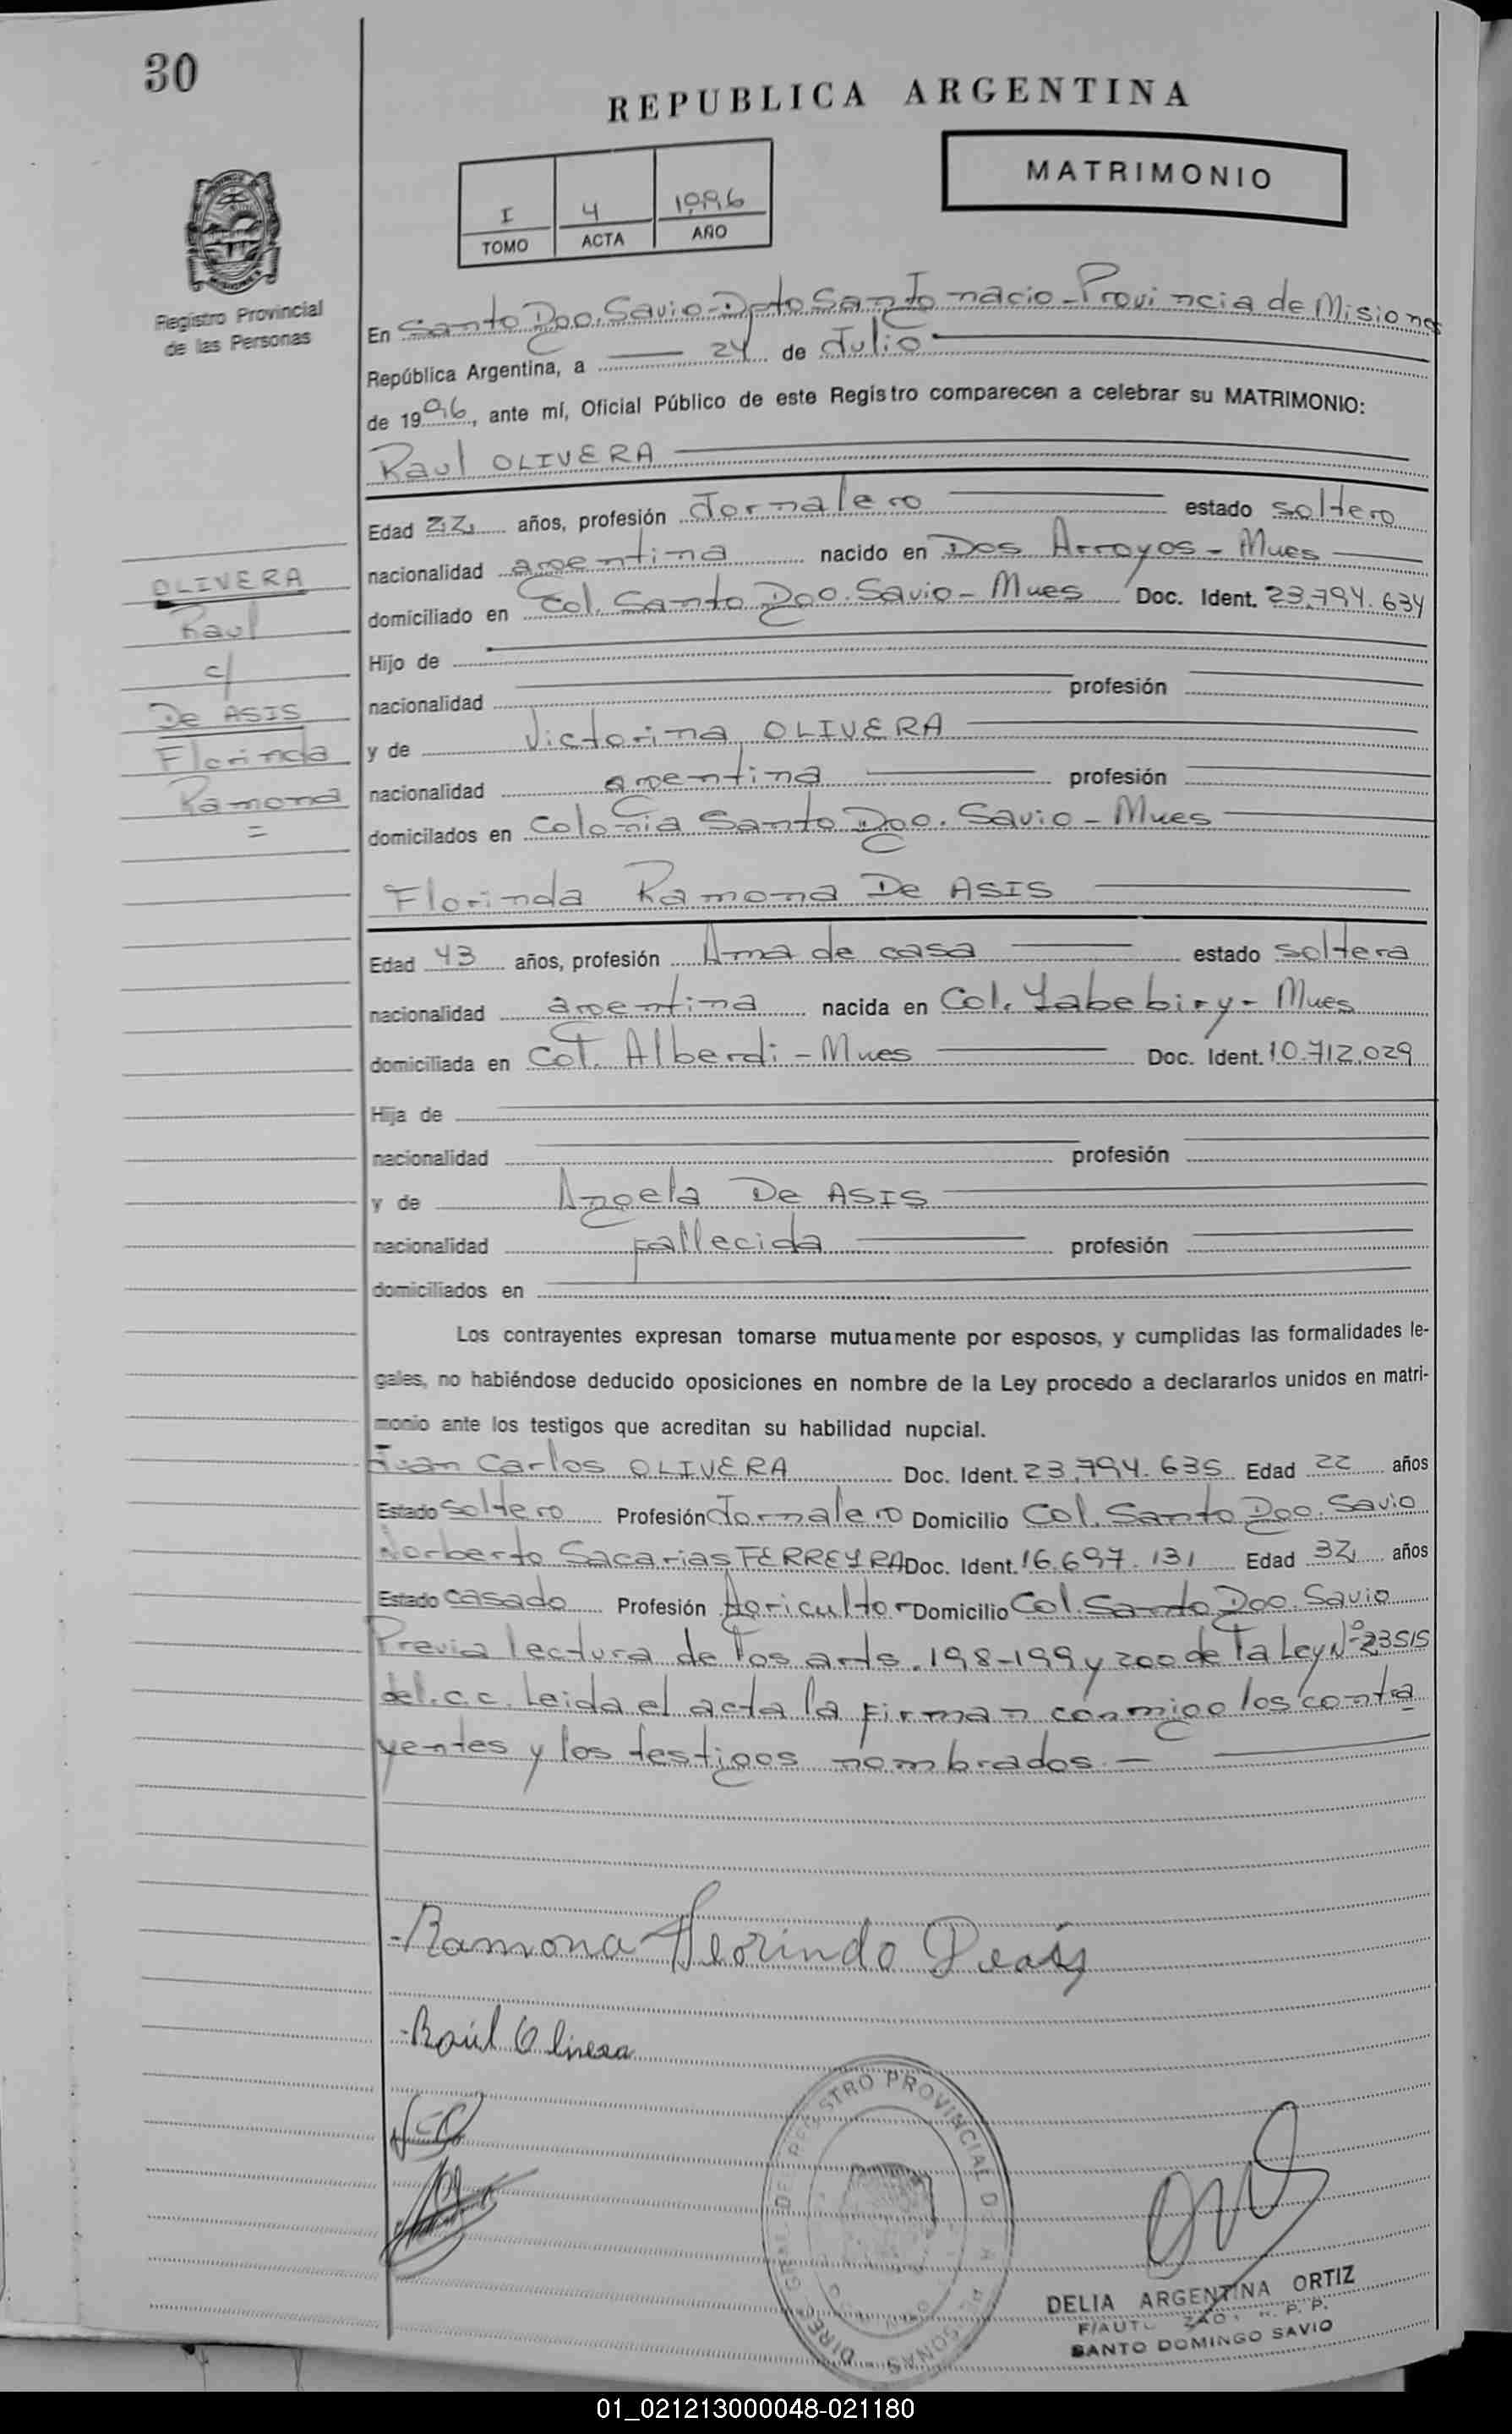 30
REPUBLICA ARGENTINA
MATRIMONIO
I 4 1996
TOMO ACTA AÑO
Registro Provincial
de las Personas
En Santo Dgo. Savio - Dpto San Ignacio - Provincia de Misiones
República Argentina, a 24 de Julio
de 1996, ante mí, Oficial Público de este Registro comparecen a celebrar su MATRIMONIO:
Raul OLIVERA
Edad 22 años, profesión Jornalero estado soltero
nacionalidad argentina nacido en Dos Arroyos - Mnes
domiciliado en Col. Santo Dgo. Savio - Mnes Doc. Ident. 23.794.634
Hijo de
nacionalidad profesión
y de Victorina OLIVERA
nacionalidad argentina profesión
domicilados en Colonia Santo Dgo. Savio - Mnes
OLIVERA
Raul
c/
De ASIS
Florinda
Ramona
=
Florinda Ramona De ASIS
Edad 43 años, profesión Ama de casa estado soltera
nacionalidad argentina nacida en Col. Yabebiry - Mnes
domiciliada en Col. Alberdi - Mnes Doc. Ident. 10.712.029
Hija de
nacionalidad profesión
y de Angela De ASIS
nacionalidad fallecida profesión
domiciliados en
Los contrayentes expresan tomarse mutuamente por esposos, y cumplidas las formalidades le-
gales, no habiéndose deducido oposiciones en nombre de la Ley procedo a declararlos unidos en matri-
monio ante los testigos que acreditan su habilidad nupcial.
Juan Carlos OLIVERA Doc. Ident. 23.794.635 Edad 22 años
Estado soltero Profesión Jornalero Domicilio Col. Santo Dgo. Savio
Norberto Sacarias FERREYRA Doc. Ident. 16.697.131 Edad 32 años
Estado casado Profesión Agricultor Domicilio Col. Santo Dgo. Savio
Previa lectura de los arts. 198-199 y 200 de la Ley Nº 23515
del. c.c. Leida el acta la firman conmigo los contra
yentes y los testigos nombrados. —
- Ramona Florinda Deasis
- Raúl Olivera
REGISTRO PROVINCIAL DE
PERSONAS
DELIA ARGENTINA ORTIZ
SANTO DOMINGO SAVIO
01_021213000048-021180